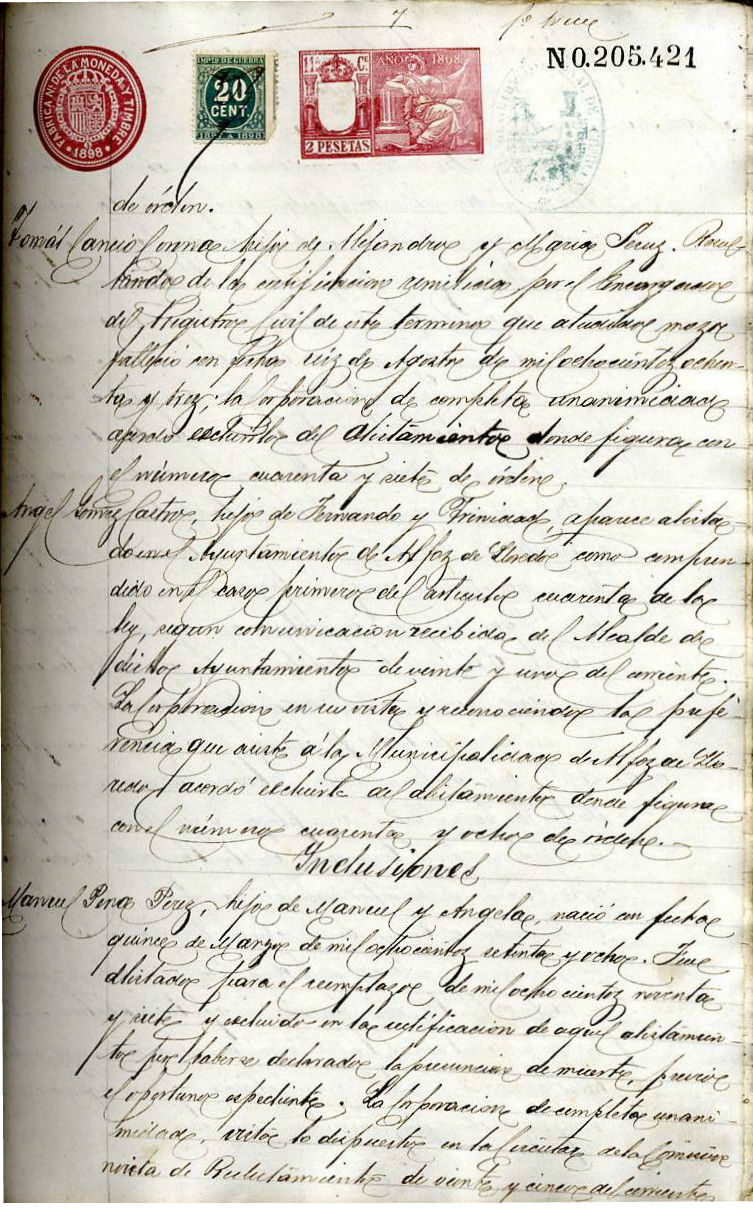 7
N0.205.421
FABRICA NL DE LA MONEDA Y TIMBRE
1898
IMPTO DE GUERRA
20
CENT
1897 A 1898
11ª Cª
AÑO 1898
2 PESETAS
de órden.
Tomás Cancio Corona hijo de Alejandro y Maria Perez. Resul-
tando de la certificacion remitida por el Encargado
del Registro Civil de este termino que el citado mozo
falleció con fecha diez de Agosto de mil ochocientos ochen-
ta y tres; la Corporacion de completa unanimidad
acordó escluirlo del alistamiento donde figura con
el número cuarenta y siete de órden.
Angel Gomez Castro, hijo de Fernando y Trinidad, aparece alista-
do en el Ayuntamiento de Alfoz de Lloredo como compren
dido en el caso primero del articulo cuarenta de la
ley, segun comunicacion recibida del Alcalde de
dicho Ayuntamiento de veinte y uno del corriente.
La Corporacion en su vista y reconociendo la prefe-
rencia que asiste á la Municipalidad de Alfoz de Llo-
redo, acordó escluirle del alistamiento donde figura
con el número cuarenta y ocho de órden.-
Inclusiones
Manuel Pena Perez, hijo de Manuel y Angela, nació con fecha
quince de Marzo de mil ochocientos setenta y ocho. Fue
alistado para el reemplazo de mil ochocientos noventa
y siete y escluido en la rectificacion de aquel alistamien-
to por haberse declarado la presuncion de muerte, previo
el oportuno espediente. La Corporacion de completa unani-
midad, visto lo dispuesto en la Circular de la Comision
mixta de Reclutamiento de veinte y cinco del corriente